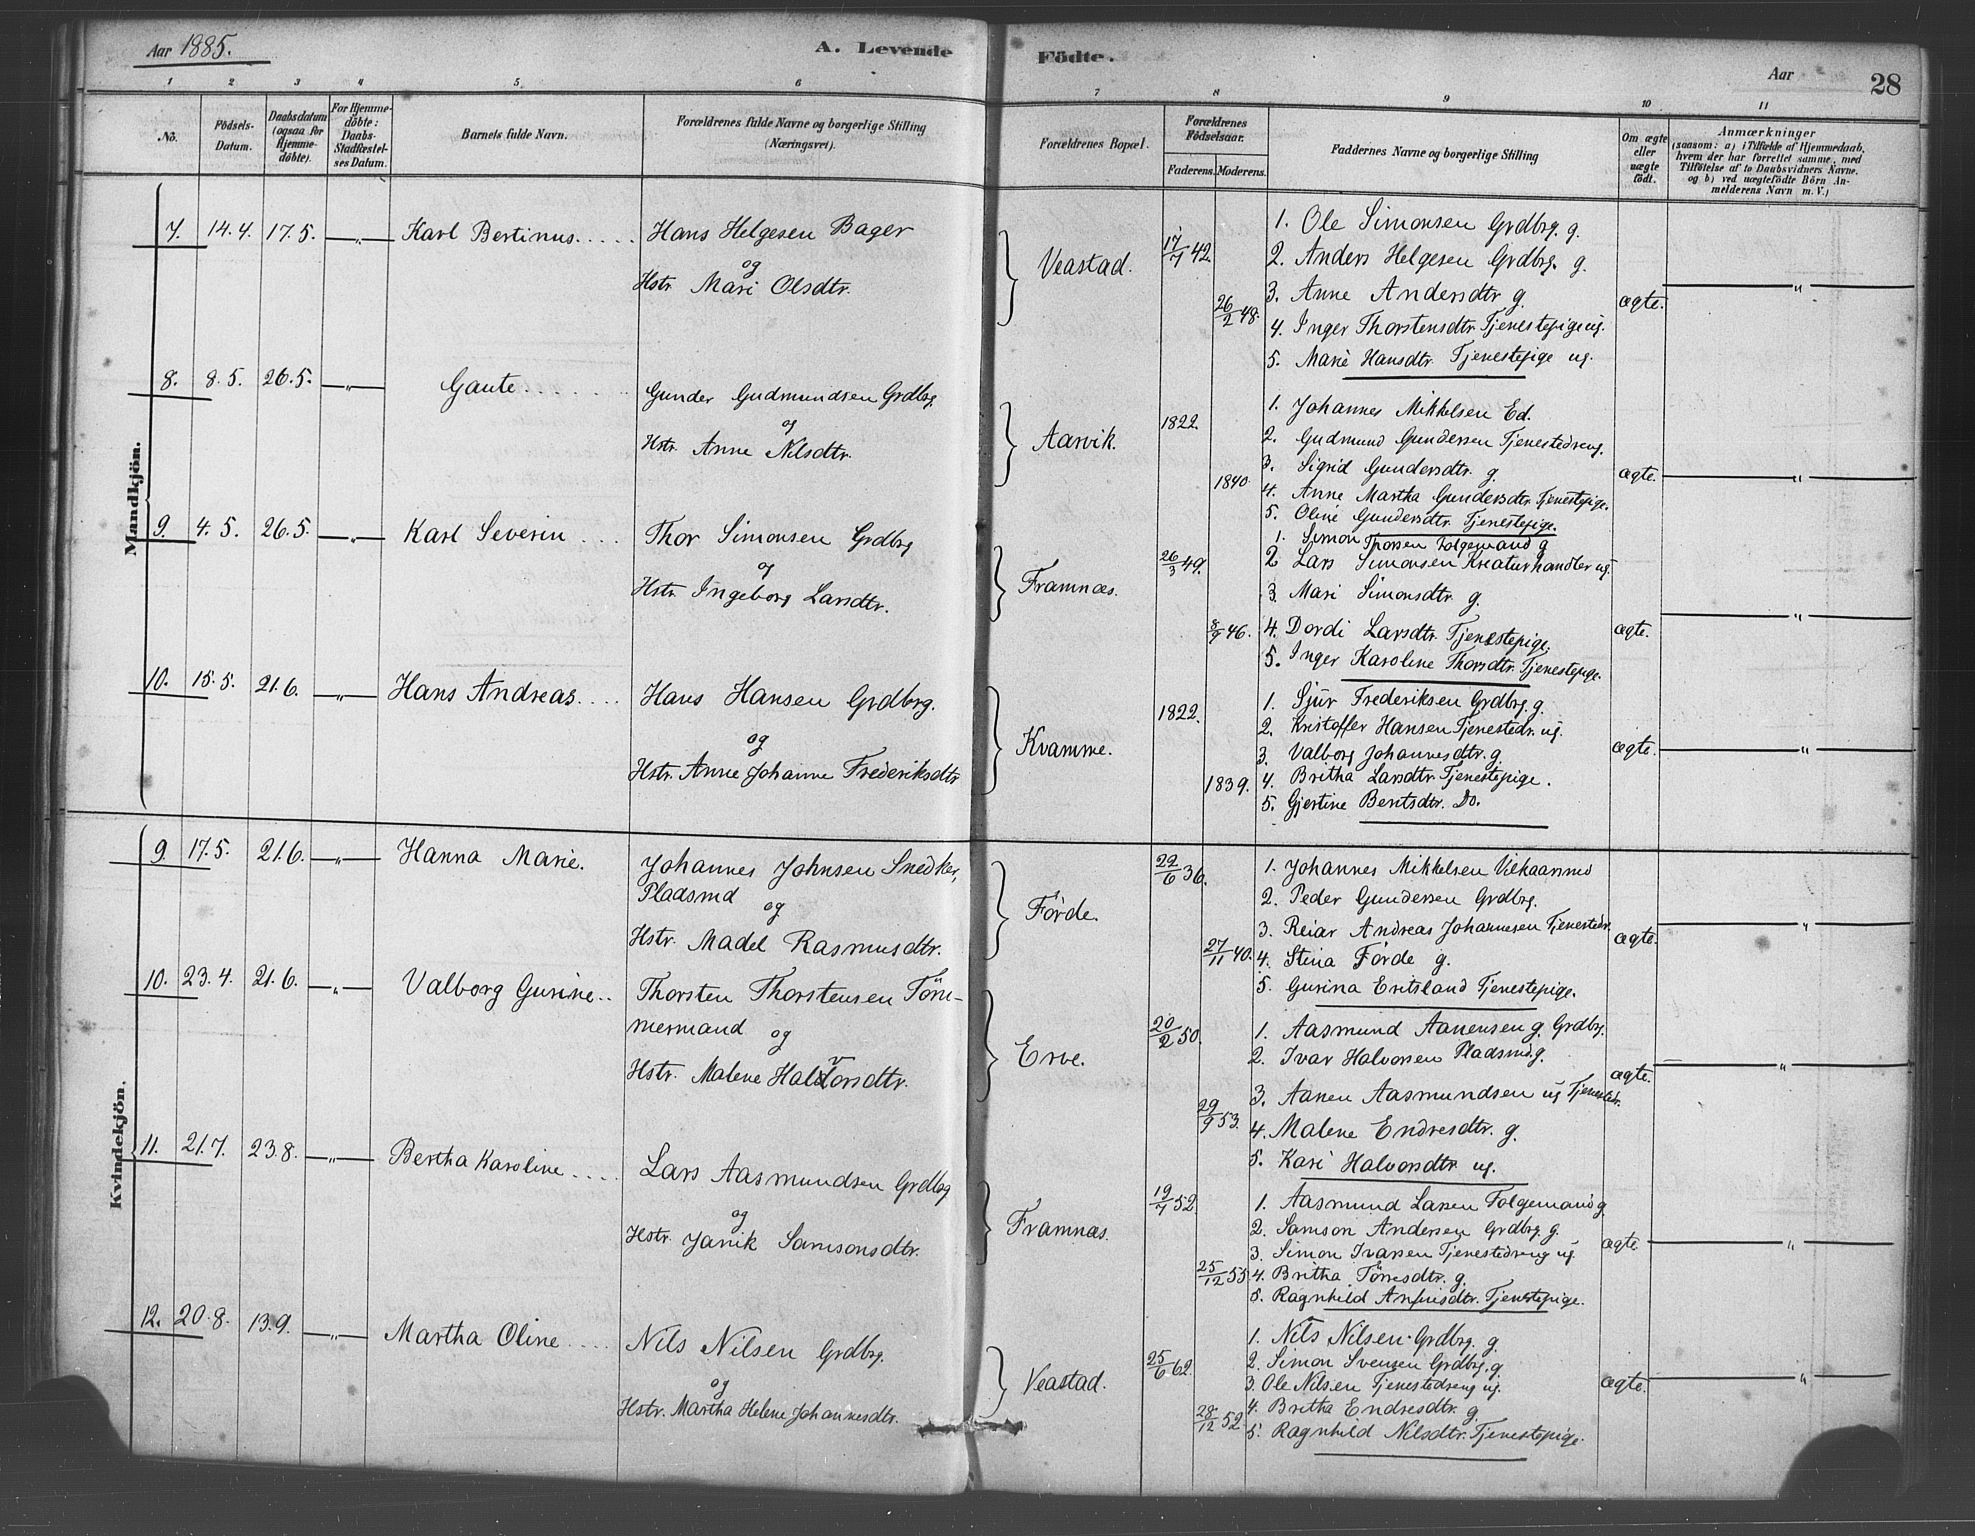 Aar 1885.
A. Levende Födte.
Aar
28
1 2 3 4 5 6 7 8 9 10 11
No.
Födsels-Datum.
Daabsdatum (ogsaa for Hjemme-döbte).
For Hjemme-döbte: Daabs-Stadfæstel-ses Datum.
Barnets fulde Navn.
Forældrenes fulde Navne og borgerlige Stilling (Næringsvei).
Forældrenes Bopæl.
Forældrenes Födselsaar.
Faderens. Moderens.
Faddernes Navne og borgerlig Stilling
Om ægte eller uægte födt.
Anmærkninger
(saasom: a) i Tilfælde af Hjemmedaab, hvem der har forrettet samme, med Tilföielse af to Daabsvidners Navne. og b) ved uægtefödte Börn An-melderens Navn m. V.)
Mandkjön.
7. 14.4. 17.5. — " — Karl Bertinus..... Hans Helgesen Bager
og
Hstr Mari Olsdtr.
Veastad. 17/7 42. 26/2 48.
1. Ole Simonsen Grdbrg. g.
2. Anders Helgesen Grdbrg. g.
3. Anne Andersdtr g.
4. Inger Thorstensdtr. Tjenestepige ug.
5. Marie Hansdtr Tjenestepige ug.
ægte. "
8. 8.5. 26.5. — " — Gaute...... Gunder Gudmundsen Grdbrg.
og
Hstr. Anne Nilsdtr.
Aarvik. 1822. 1840.
1. Johannes Mikkelsen Ed.
2. Gudmund Gundersen Tjenestedreng.
3. Sigrid Gundersdtr. g.
4. Anne Martha Gundersdtr. Tjenestepige.
5. Oline Gundersdtr. Tjenestepige.
ægte. "
9. 4.5. 26.5. — " — Karl Severin ... Thor Simonsen Grdbrg
og
Hstr. Ingeborg Larsdtr.
Framnæs. 26/3 49. 8/9 46.
1. Simon Thorsen Folgemand g
2 Lars Simonsen Kreaturhandler ug.
3. Mari Simonsdtr. g.
4. Dordi Larsdtr. Tjenestepige.
5. Inger Karoline Thorsdtr. Tjenestepige.
ægte. "
10. 15.5. 21.6. — " — Hans Andreas.... Hans Hansen Grdbrg.
og
Hstr. Anne Johanne Frederiksdtr
Kvamme. 1822. 1839.
1. Sjur Frederiksen Grdbrg. g.
2. Kristoffer Hansen Tjenestedr. ug.
3. Valborg Johannesdtr. g.
4. Britha Larsdtr. Tjenestepige.
5. Gjertine Bentsdtr. Do.
ægte. "
Kvindekjön.
9. 17.5. 21.6. — " — Hanna Marie. Johannes Johnsen Snedker,
Pladsmd
og
Hstr. Madel Rasmusdtr.
Förde. 22/6 36. 27/11 40.
1. Johannes Mikkelsen Vilkaarsmd
2. Peder Gundersen Grdbrg.
3. Reiar Andreas Johannesen Tjenestedr.
4. Stina Förde g.
5. Gurina Eritsland Tjenestepige.
ægte. "
10. 23.4. 21.6. — " — Valborg Gurine.. Thorsten Thorstensen Töm-
mermand og
Hstr. Malene Halvorsdtr.
Erve. 20/2 50. 29/9 53.
1. Aasmund Aanensen g. Grdbrg.
2. Ivar Halvorsen Pladsmd g.
3. Aanen Aasmundsen ug Tjenestedr.
4. Malene Endresdtr. g.
5. Kari Halvorsdtr ug.
ægte. "
11. 21.7. 23.8. — " — Bertha Karoline.... Lars Aasmundsen Grdbrg
og
Hstr. Janik Samsonsdtr.
Framnæs. 19/7 52. 25/12 55
1. Aasmund Larsen Folgemand g.
2. Samson Andersen Grdbrg. g.
3. Simon Ivarsen Tjenestedreng ug.
4. Britha Törresdtr. g.
5. Ragnhild Anfinsdtr. Tjenestepige.
ægte. "
12. 20.8. 13.9. — " — Martha Oline.... Nils Nilsen Grdbrg.
og
Hstr. Martha Helene Johannesdtr.
Veastad. 25/6 62. 28/12 52.
1. Nils Nilsen Grdbrg. g.
2. Simon Svensen Grdbrg. g.
3. Ole Nilsen Tjenestedreng ug.
4. Britha Endresdtr. g.
5. Ragnhild Nilsdtr. Tjenestepige.
ægte. "